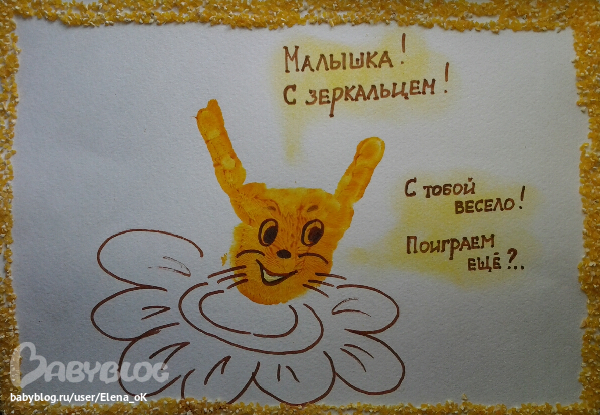 Малышка!
С зеркальцем!
С тобой
весело!
Поиграем
ещё?..
BABYBLOG
babyblog.ru/user/Elena_oK